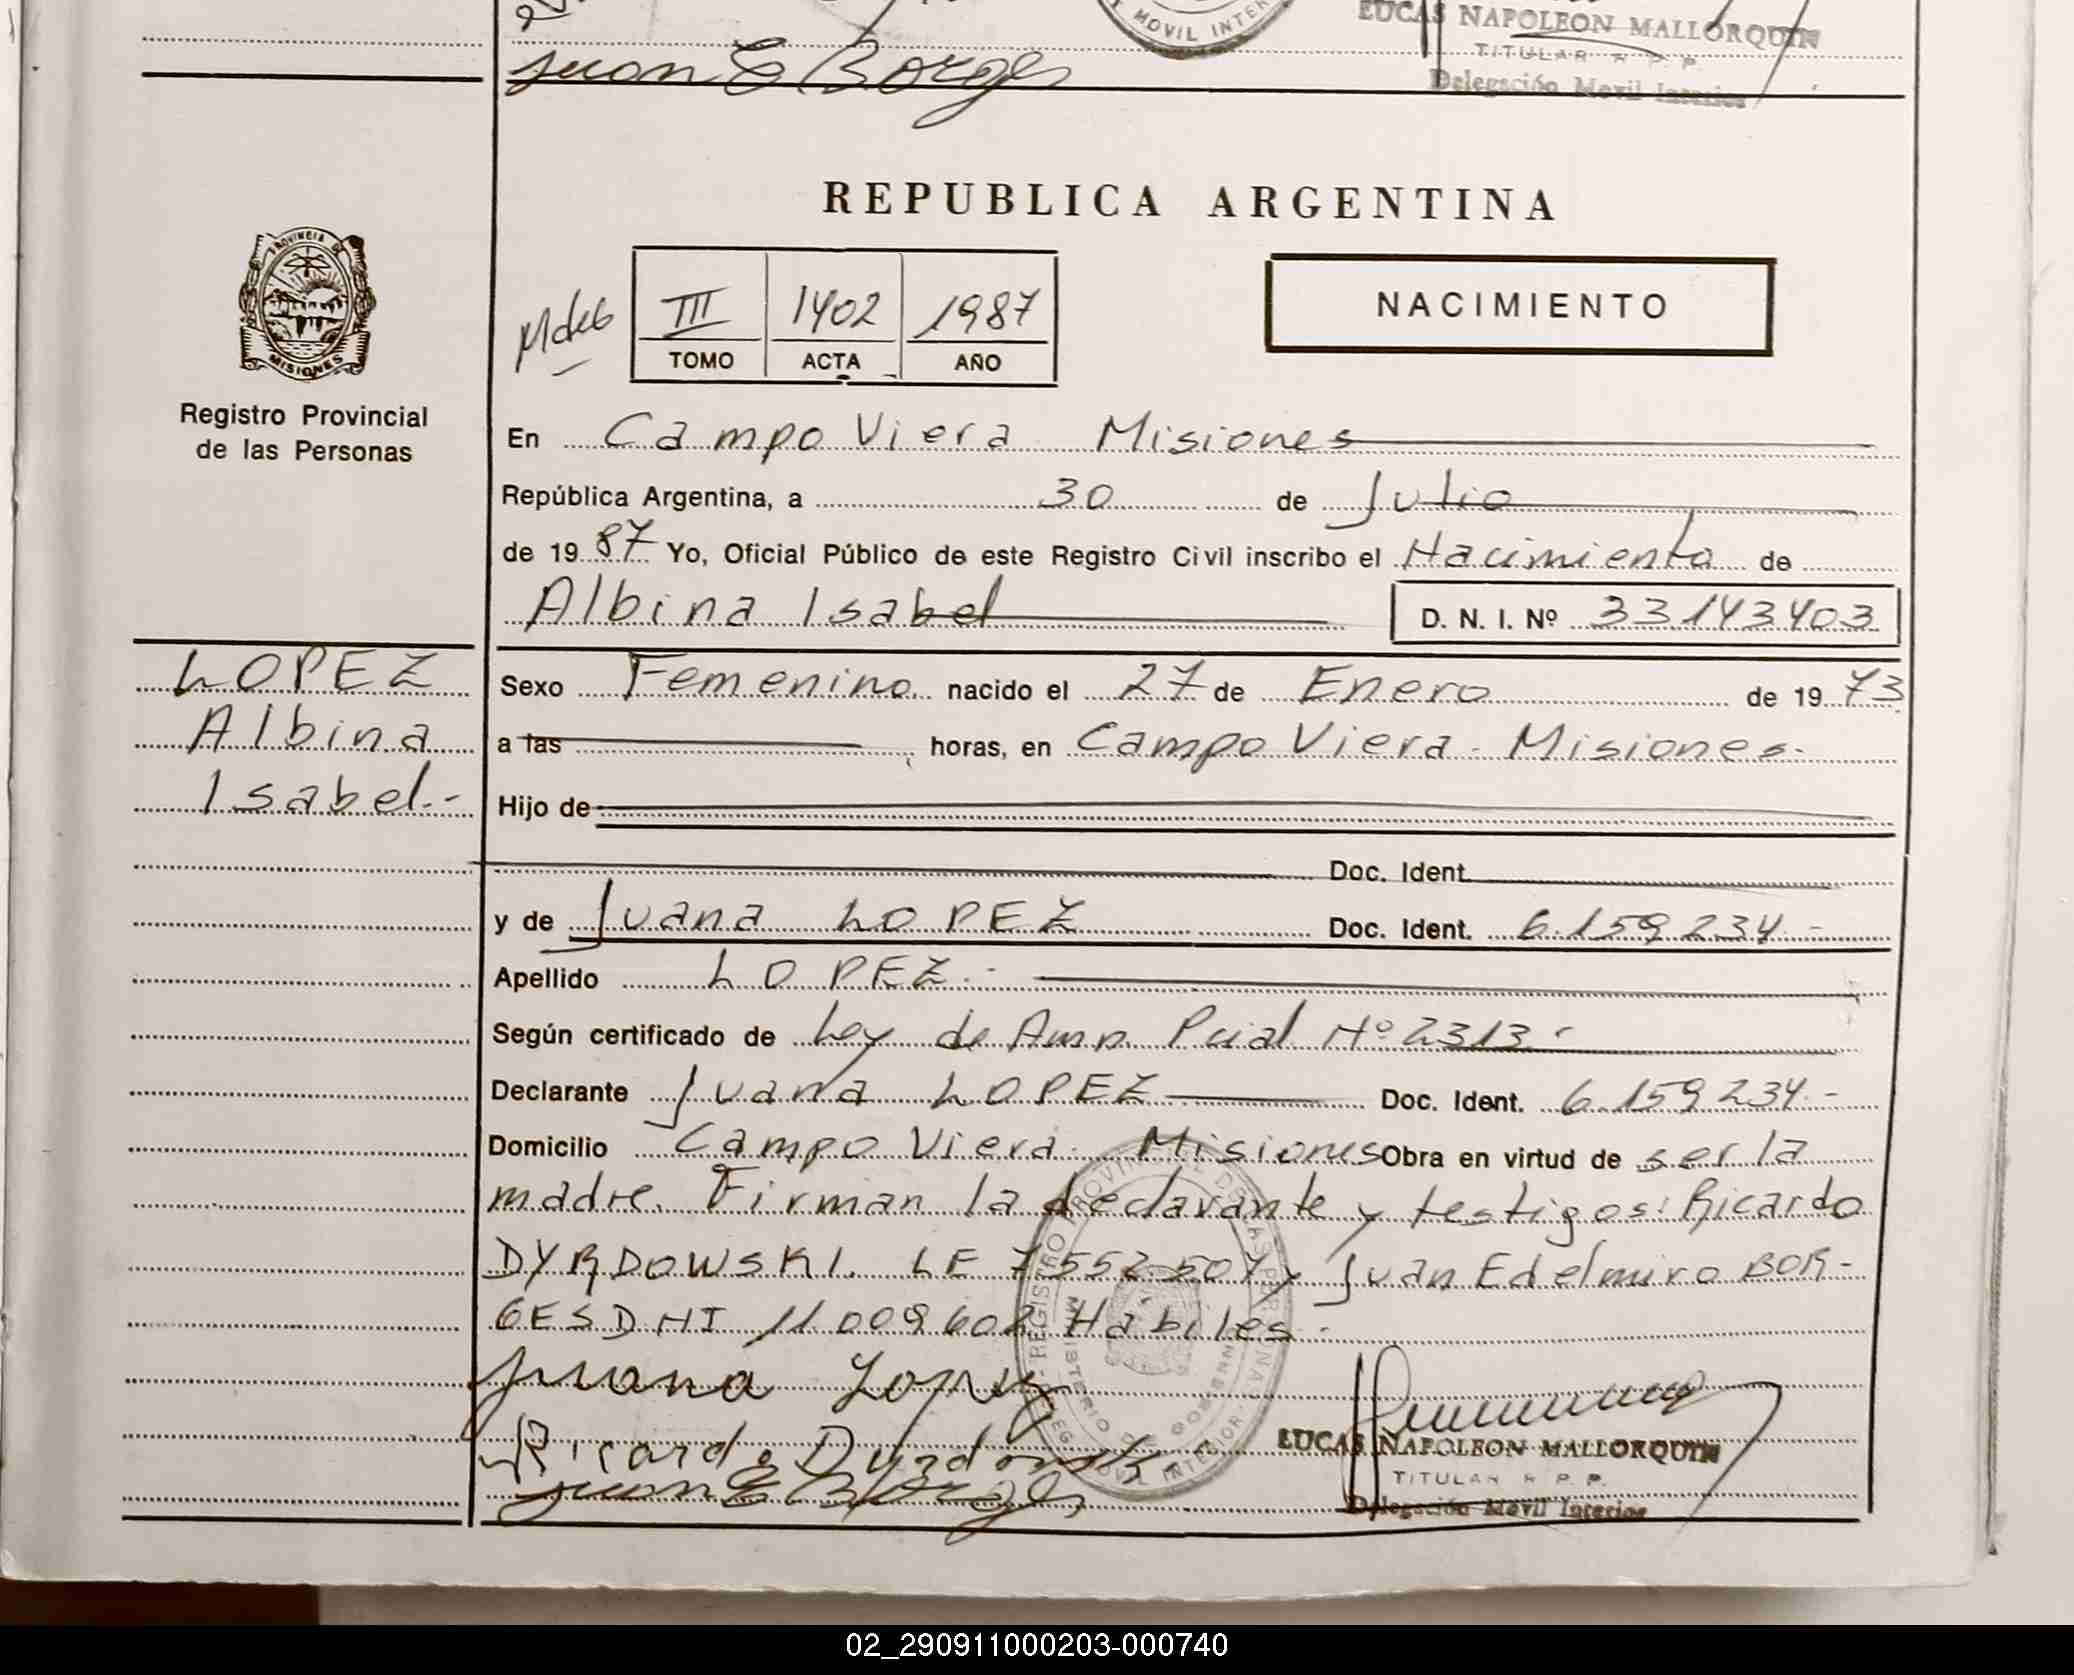 Juan E Borges
MOVIL INTER
LUCAS NAPOLEON MALLORQUIN
TITULAR R P P.
Delegación Movil Interior
REPUBLICA ARGENTINA
PROVINCIA DE
MISIONES
Registro Provincial
de las Personas
III 1402 1987
TOMO ACTA AÑO
NACIMIENTO
En Campo Viera Misiones
República Argentina, a 30 de Julio
de 1987 Yo, Oficial Público de este Registro Civil inscribo el Nacimiento de
Albina Isabel D. N. I. Nº 33143403
LOPEZ
Albina
Isabel.-
Sexo Femenino nacido el 27 de Enero de 1973
a las horas, en Campo Viera - Misiones.
Hijo de
Doc. Ident.
y de Juana LOPEZ Doc. Ident. 6.159.234.-
Apellido LOPEZ.-
Según certificado de Ley de Amp. Pcial Nº 2313.
Declarante Juana LOPEZ Doc. Ident. 6.159.234.-
Domicilio Campo Viera. Misiones Obra en virtud de ser la
madre. Firman la declarante y testigos: Ricardo
DYRDOWSKI. LE 7.552.507 y Juan Edelmiro BOR-
GES DNI 11.009.602 Habiles.
Juana Lopez
Ricardo Dyrdowski
Juan E Borges
LUCAS NAPOLEON MALLORQUIN
TITULAR R P P.
Delegación Movil Interior
02_290911000203-000740